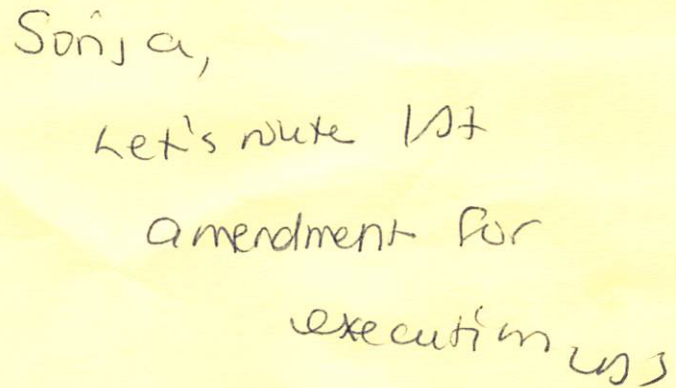 Sonja,
Let's route 1st
amendment for
execution